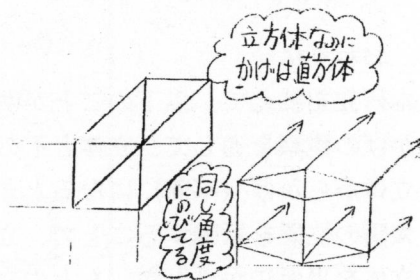 立方体なのに
かげは直方体
同じ角度
にのびてる